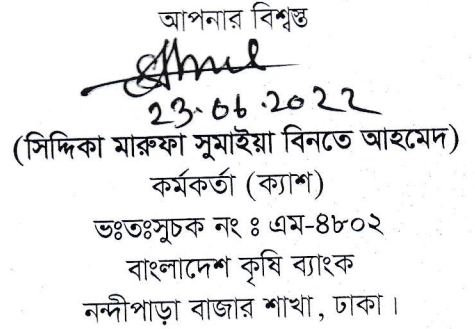 আপনার বিশ্বস্ত
23.06.2022
(সিদ্দিকা মারুফা সুমাইয়া বিনতে আহমেদ)
কর্মকর্তা (ক্যাশ)
ভঃতঃসুচক নং ঃ এম-৪৮০২
বাংলাদেশ কৃষি ব্যাংক
নন্দীপাড়া বাজার শাখা, ঢাকা।